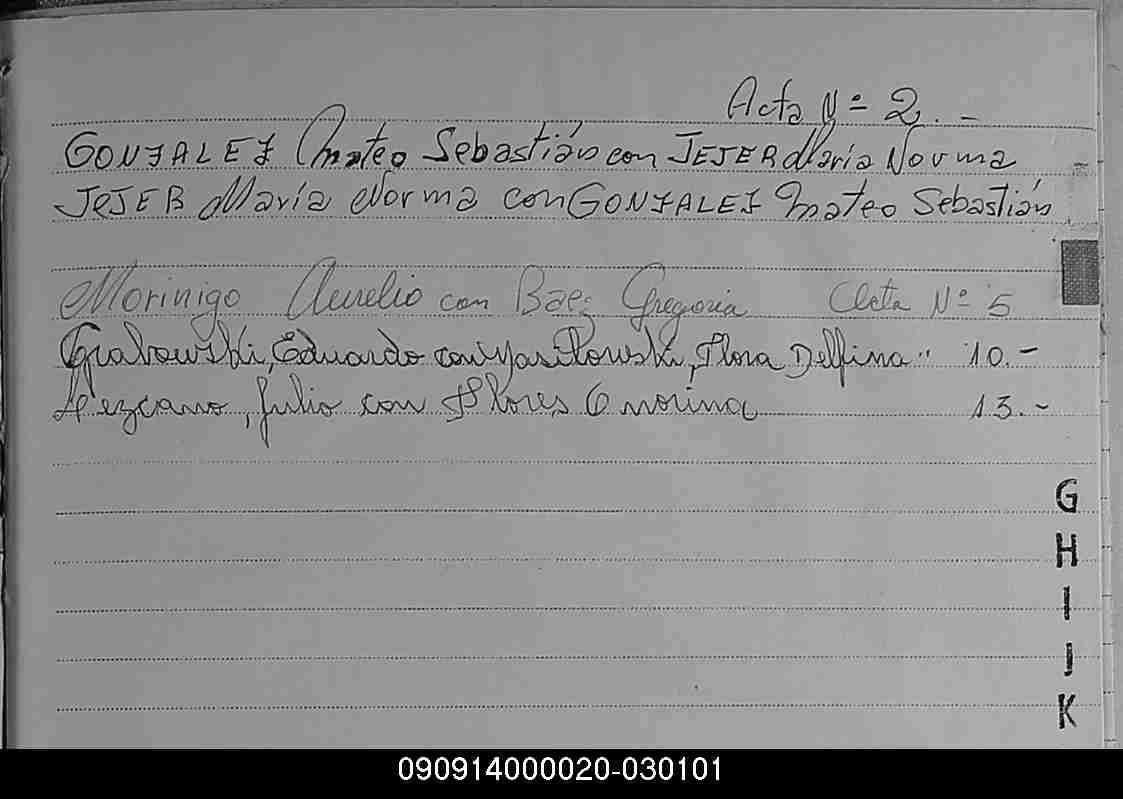 Acta Nº 2.-
GONZALEZ Mateo Sebastián con JEJER María Norma
JEJER María Norma con GONZALEZ Mateo Sebastián
Morinigo Aurelio con Baez Gregoria Acta Nº 5
Grabowski, Eduardo con Flora Delfina " 10.-
Lezcano, Julio con Flores Onorina 13.-
G
H
I
J
K
090914000020-030101